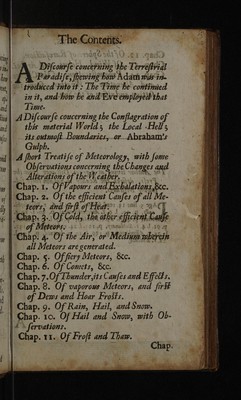 The Contents.
A Discourse concerning the Terrestrial
Paradise, shewing how Adam was in-
troduced into it: The Time he continued
in it, and how he and Eve employed that
Time.
A Discourse concerning the Conflagration of
this material World; the Local Hell;
its outmost Boundaries, or Abraham's
Gulph.
A short Treatise of Meteorology, with some
Observations concerning the Changes and
Alterations of the Weather.
Chap. 1. Of Vapours and Exhalations, &c.
Chap. 2. Of the efficient Causes of all Me-
teors, and first of Heat.
Chap. 3. Of Cold, the other efficient Cause
of Meteors.
Chap. 4. Of the Air, or Medium wherein
all Meteors are generated.
Chap. 5. Of fiery Meteors, &c.
Chap. 6. Of Comets, &c.
Chap. 7. Of Thunder, its Causes and Effects.
Chap. 8. Of vaporous Meteors, and first
of Dews and Hoar Frosts.
Chap. 9. Of Rain, Hail, and Snow.
Chap. 10. Of Hail and Snow, with Ob-
servations.
Chap. 11. Of Frost and Thaw.
Chap.